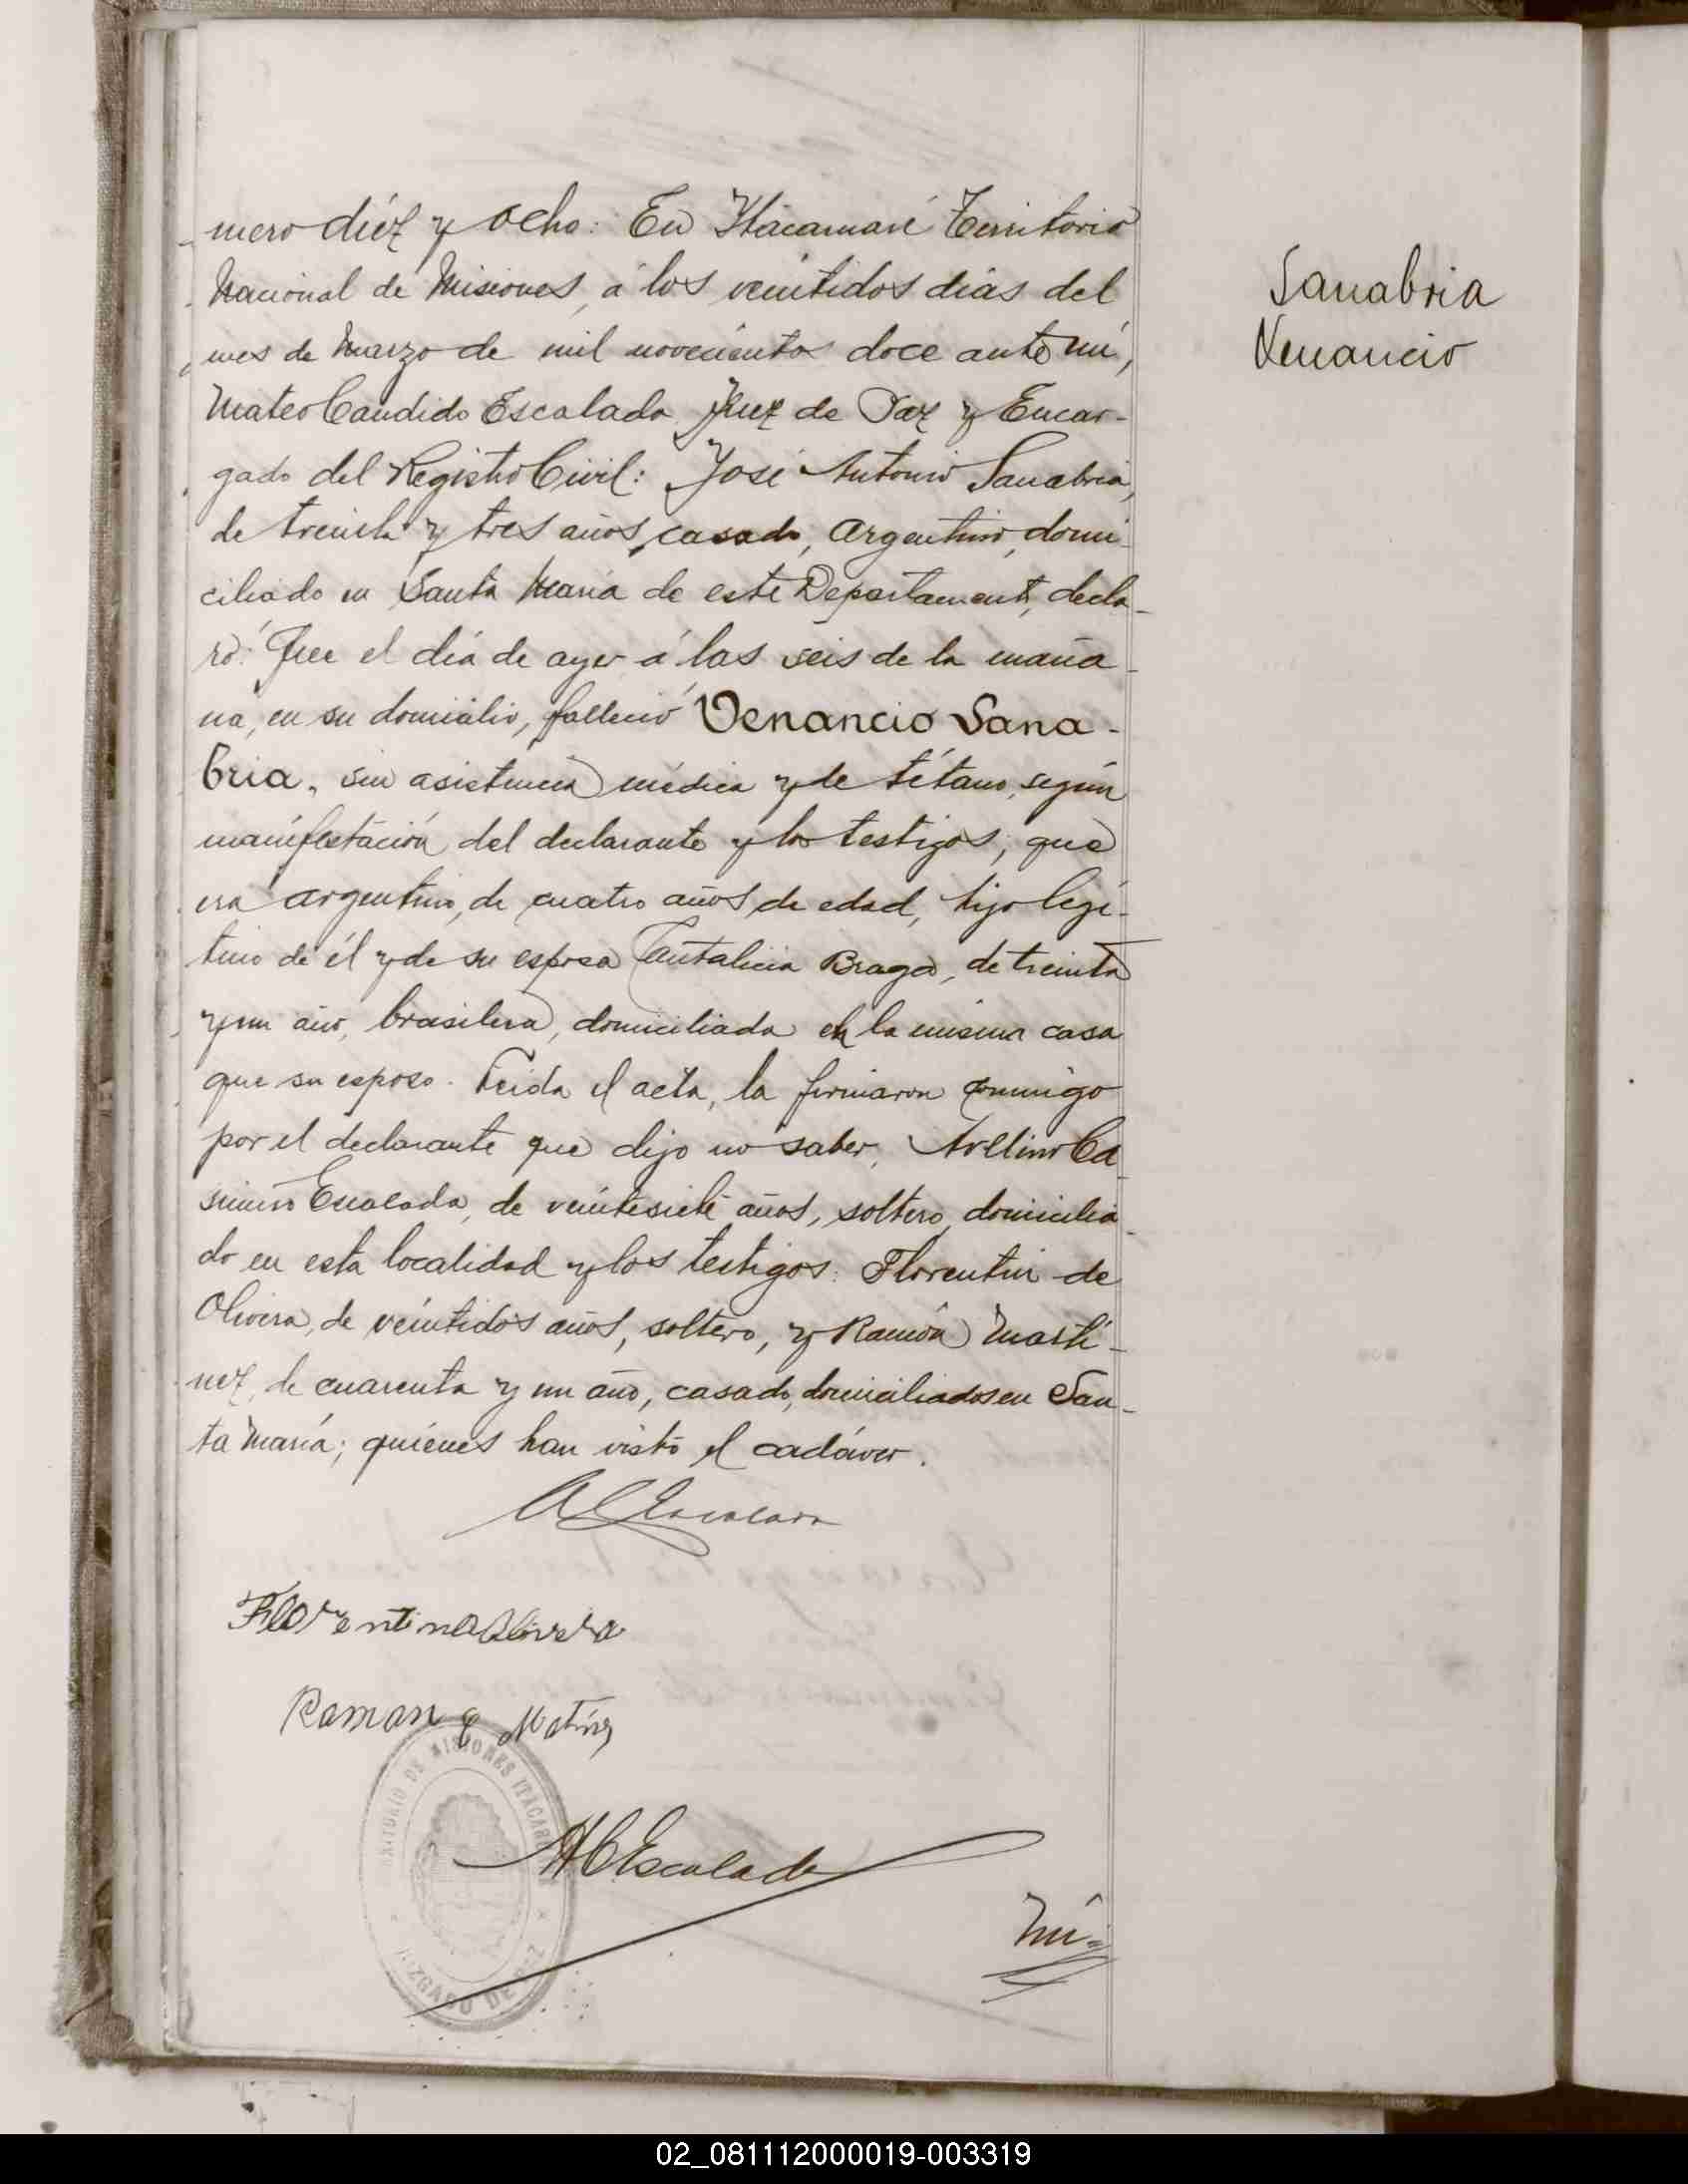 mero diéz y ocho: En Itacaruaré Territorio
Nacional de Misiones, á los veintidos dias del
mes de Marzo de mil novecientos doce ante mí,
Mateo Candido Escalada Juez de Paz y Encar-
gado del Registro Civil: José Antonio Sanabria,
de treinta y tres años, casado, argentino, domi-
ciliado en Santa Maria de este Departamento, decla-
ró: Que el día de ayer á las seis de la maña-
na, en su domicilio, falleció Venancio Sana-
bria, sin asistencia médica y de tétano, según
manifestación del declarante y los testigos; que
era argentino, de cuatro años de edad, hijo legí-
timo de él y de su esposa Cantalicia Braga, de treinta
y un año, brasilera, domiciliada en la misma casa
que su esposo. Leida el acta, la firmaron conmigo
por el declarante que dijo no saber, Avelino Ca-
simiro Escalada, de veintesiete años, soltero, domicilia-
do en esta localidad y los testigos: Florentin de
Olivera, de veintidos años, soltero, y Ramón Martí-
nez, de cuarenta y un año, casado, domiciliados en San-
ta María; quiénes han visto el cadáver.
A C Escalada
Florentin de Olivera
Ramon Matinz
TERRITORIO DE MISIONES ITACARUARE
JUZGADO DE PAZ
M C Escalada
Nú-
Sanabria
Venancio
02_081112000019-003319